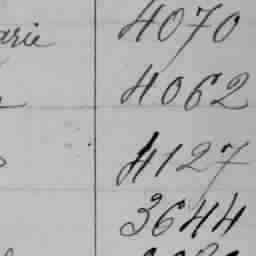 arie 4070
4062
4127
3644